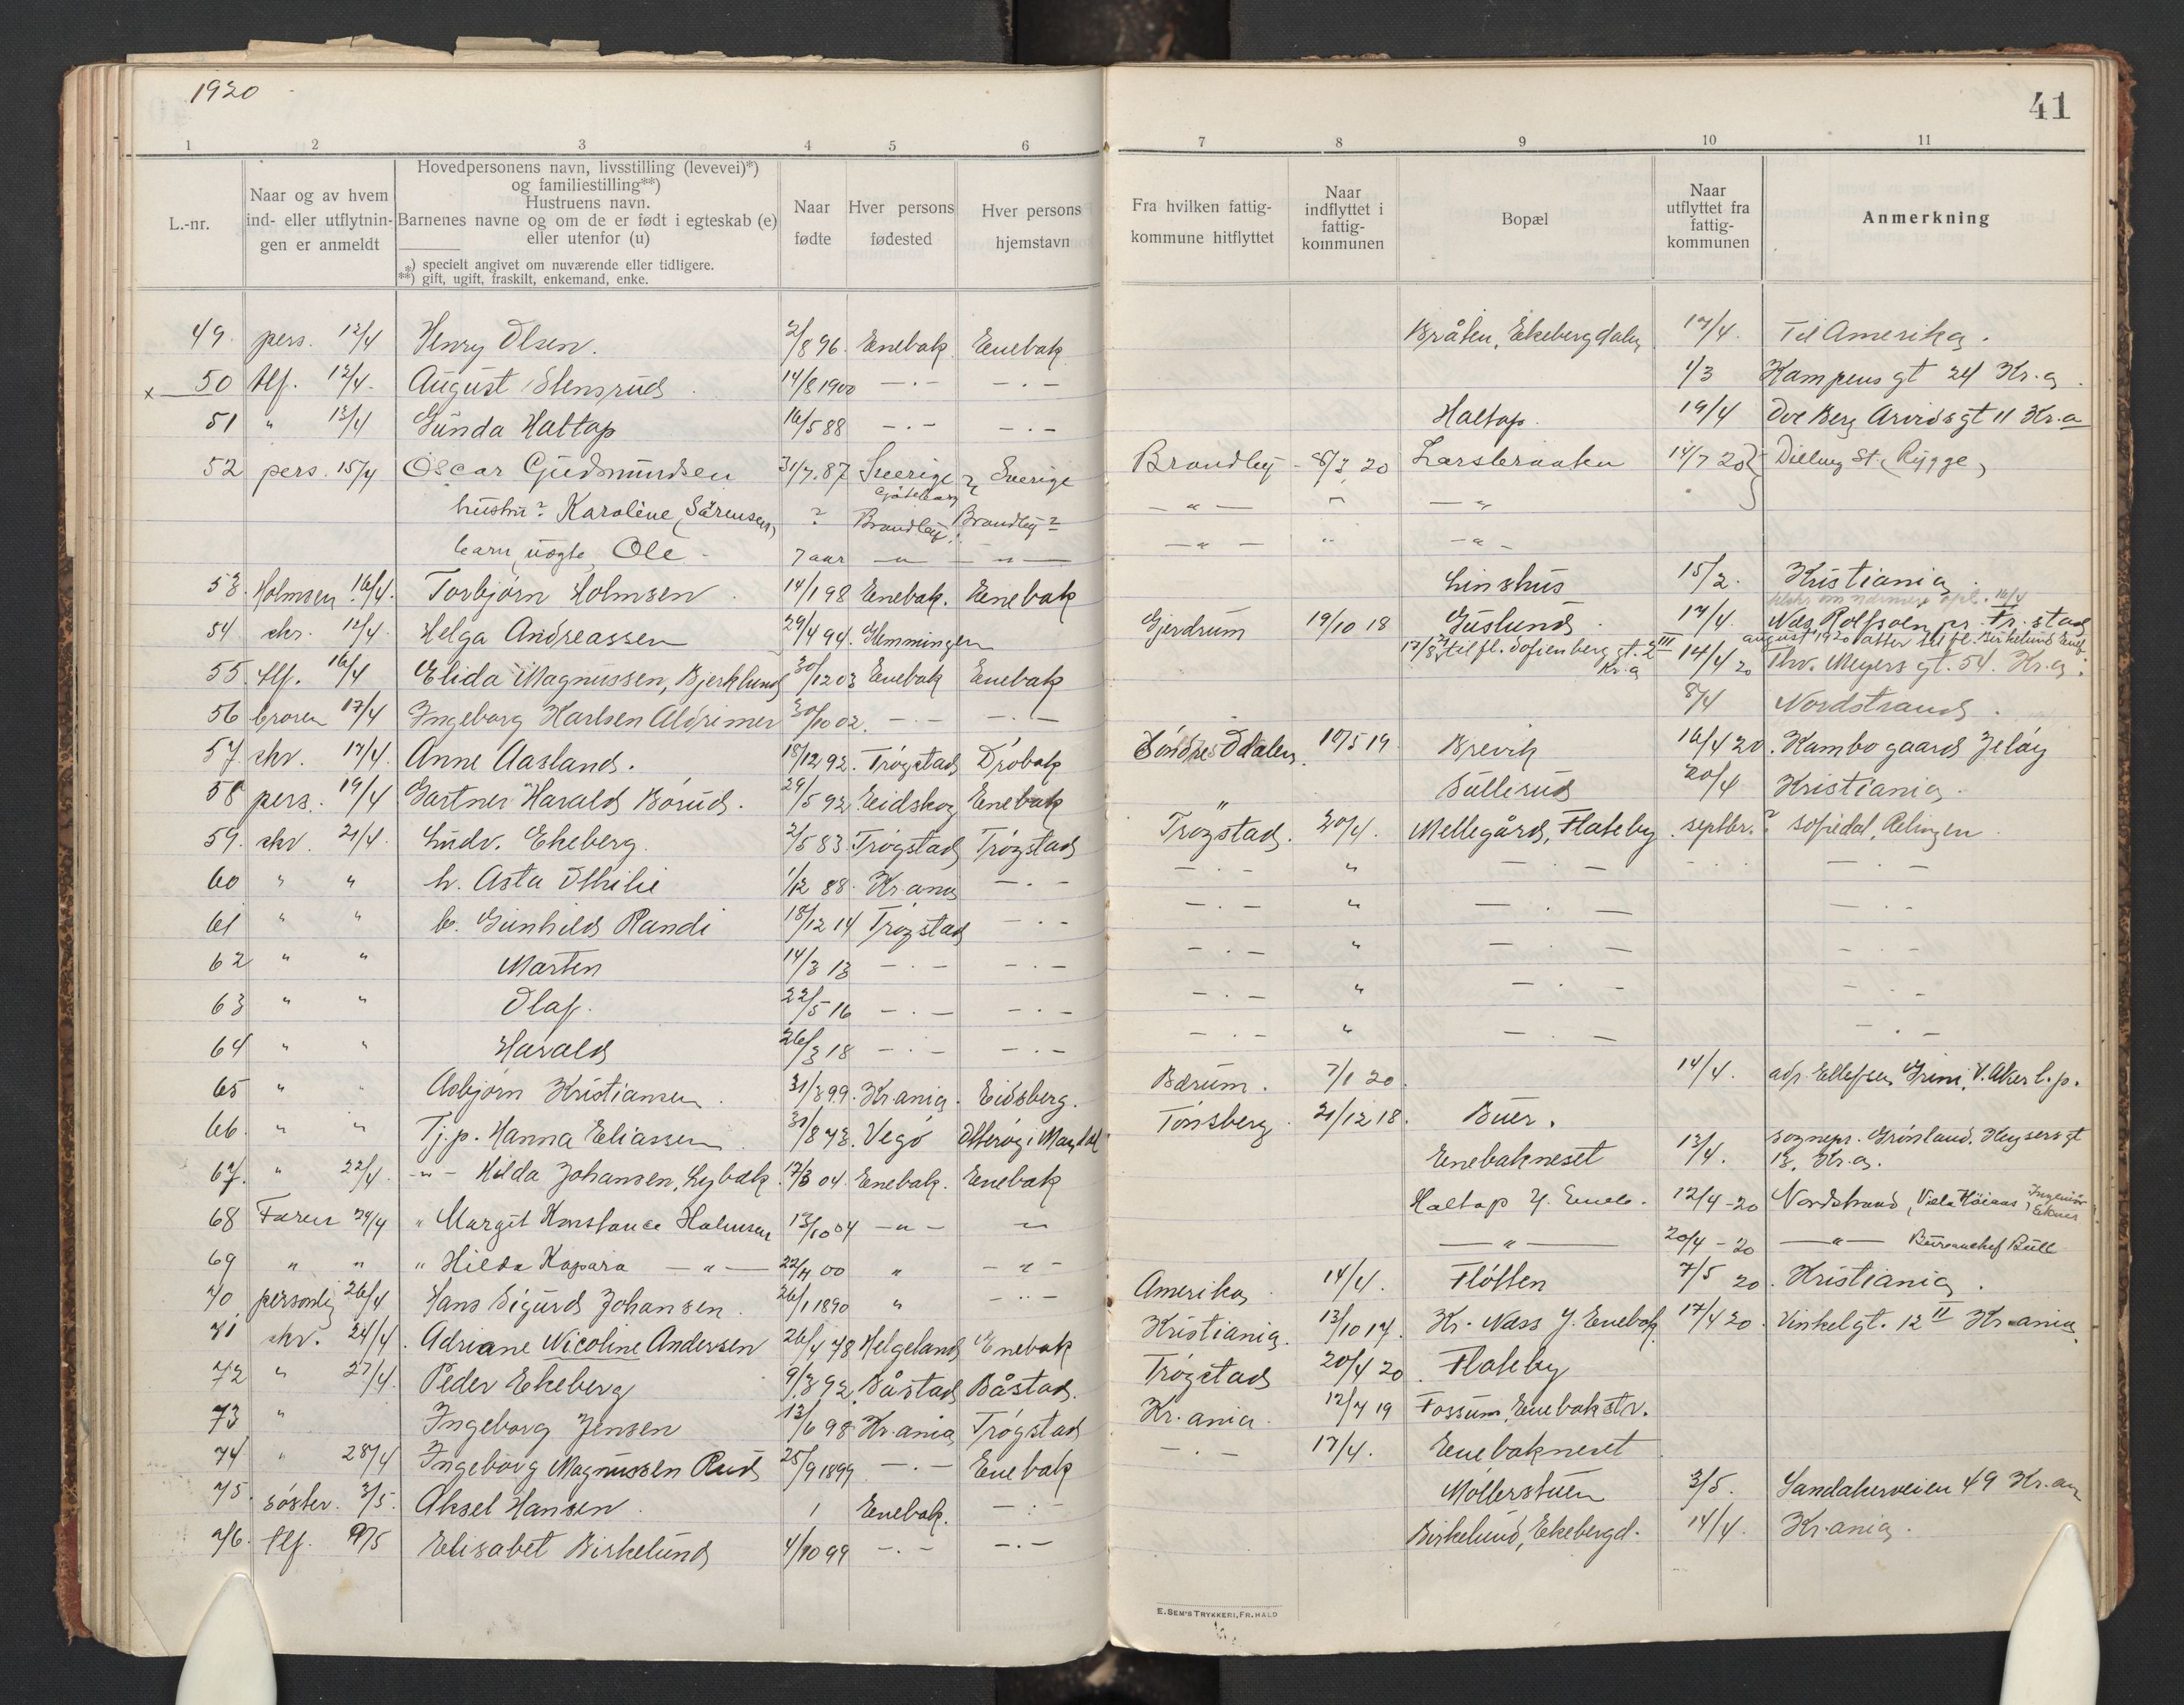 1920
41
1 2 3 4 5 6 7 8 9 10 11
L.-nr.
Naar og av hvem
ind- eller utflytnin-
gen er anmeldt
Hovedpersonens navn, livsstilling (levevei)*)
og familiestilling**)
Hustruens navn.
Barnenes navne og om de er født i egteskab (e)
eller utenfor (u)
*) specielt angivet om nuværende eller tidligere.
**) gift, ugift, fraskilt, enkemand, enke.
Naar
fødte
Hver persons
fødested
Hver persons
hjemstavn
Fra hvilken fattig-
kommune hitflyttet
Naar
indflyttet i
fattig-
kommunen
Bopæl
Naar
utflyttet fra
fattig-
kommunen
Anmerkning
49 pers. 12/4 Henry Olsen. 2/8 96. Enebak Enebak Bråten, Ekebergdalen 17/4. Til Amerika.
x 50 tlf. 12/4. August Stensrud. 14/8 1900 -.- -.- 1/3 Kampens gt 24 Kr.a.
51 " 13/4 Gunda Haltop 16/5 88 -.- -.- Haltop. 19/4 Arvids gt 11 Kr.a
52 pers. 15/4 Oscar Gudmundsen 31/7.87 Sverige Göteborg ? Sverige Brandbu - 8/3 20 Larsbraaten 14/7 20 Dilling St. (Rygge)
hustru? Karoline Sørensen, ? Brandbu. Brandbu? - " - " - "
barn uægte Ole - 7 aar - " - - " - - " - " - " -
53. Holmsen 16/4. Torbjørn Holmsen. 14/1 98 Enebak. Enebak Linshus 15/2. Kristiania.
54 skr. 12/4. Helga Andreassen 29/4 94. Glemmingen Gjerdrum 19/10 18 Guslund. 17/4. Nils Rolfsøen pr. Fr.stad
17/8 til fl. Sofienberg gt. 2 III Kr.a august 1920 atter til fl. Birkelund Eneb.
55. tlf. 16/4 Elida Magnussen, Bjerklund 30/12 03 Enebak Enebak 14/4 20 Thv. Meyers gt. 54. Kr.a.
56 broren 17/4 Ingeborg Karlsen Aldrimer 30/10 02. -.- -.- 8/4 Nordstrand.
57. skr. 17/4. Anne Aasland. 18/12 92. Trøgstad Drøbak Søndre Odalen. 10/5 19 Brevik 16/4 20. Kambo gaard Jeløy
58 pers. 19/4 Gartner Harald Borud. 29/5 92 Eidskog Enebak " Bullerud 20/4 Kristiania.
59. skr. 21/4. Ludv. Ekeberg. 2/5 83 Trøgstad Trøgstad Trøgstad. 20/4. Mellegård, Flateby. septbr. ? Sofiedal, Rælingen.
60 " " h. Asta Othilie 1/12 88. Kr.ania -.- -.- " -.- -.- -.-
61 " " b. Gunhild Randi 18/12 14 Trøgstad -.- -.- " -.- -.-
62 " " Marten 14/3 13 -.- -.- -.- " -.- -.-
63 " " Olaf. 22/5 16 -.- -.- -.- " -.- -.-
64 " " Harald 26/3 18 -.- -.- -.- " -.- -.-
65 " " Asbjørn Kristiansen. 31/3 99. Kr.ania. Eidsberg. Bærum. 7/1 20. 14/4. adr. Ellefsen, Grini, V. Aker l.p.
66. " " Tj.p. Hanna Eliassen. 31/8 73. Vegø Tønsberg 21/12 18. Buer.
67. " 22/4. -"- Hilda Johansen, Lybæk. 17/3 04. Enebak. Enebak Enebakneset 13/4. sognepr. Grønland. Keysers gt 13. Kr.a.
68 Faren 24/4 " Margit Konstance Holmsen 13/10 04 -"- " Haltop Y. Eneb. 12/4-20 Nordstrand, Villa Høiaas, Ingeniør
69 " " " Hilda Kapara -"- 22/4 00 " -"- -"- 20/4-20 -"- Bureauchef Bull
70 personlig 26/4 Hans Sigurd Johansen. 26/1 1890 " -"- Amerika 14/4. Fløtten 7/5 20. Kristiania.
71 skr. 24/4. Adriane Nicoline Andersen 26/4 78 Helgeland Enebak Kristiania. 13/10 17. Kr. Næss Y. Enebak 17/4 20. Vinkelgt. 12 II Kr.ania.
72 " 27/4. Peder Ekeberg 9/3 92. Båstad Båstad. Trøgstad 20/4 20. Flateby
73 " Ingeborg Jensen 13/6 98 Kr.ania Trøgstad Kr.ania. 12/7 19 Fossum, Enebakstr.
74 " 28/4 Ingeborg Magnussen Rud 25/9 1899 -.- Enebak -.- 17/4. Enebakneset.
75. søster. 3/5. Aksel Hansen. 1 Enebak. -.- Møllerstuen 3/5. Sandakerveien 49 Kr.an
76. tlf. 7/5 Elisabet Birkelund 4/10 99 -.- -.- Birkelund, Ekebergd. 14/4. Kr.ania.
E. SEM'S TRYKKERI, FR.HALD